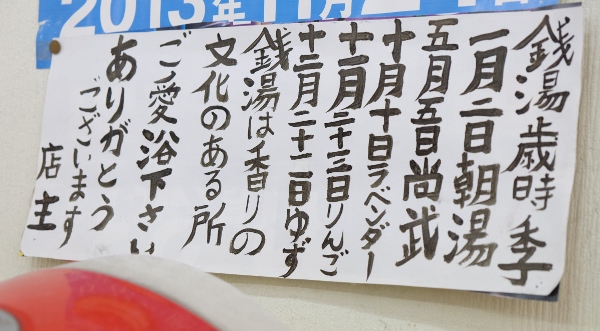 2013年11月24日
銭湯歳時季
一月二日朝湯
五月五日尚武
十月十日ラベンダー
十一月二十三日りんご
十二月二十二日ゆず
銭湯は香りの
文化のある所
ご愛浴下さい
ありがとう
ございます
店主